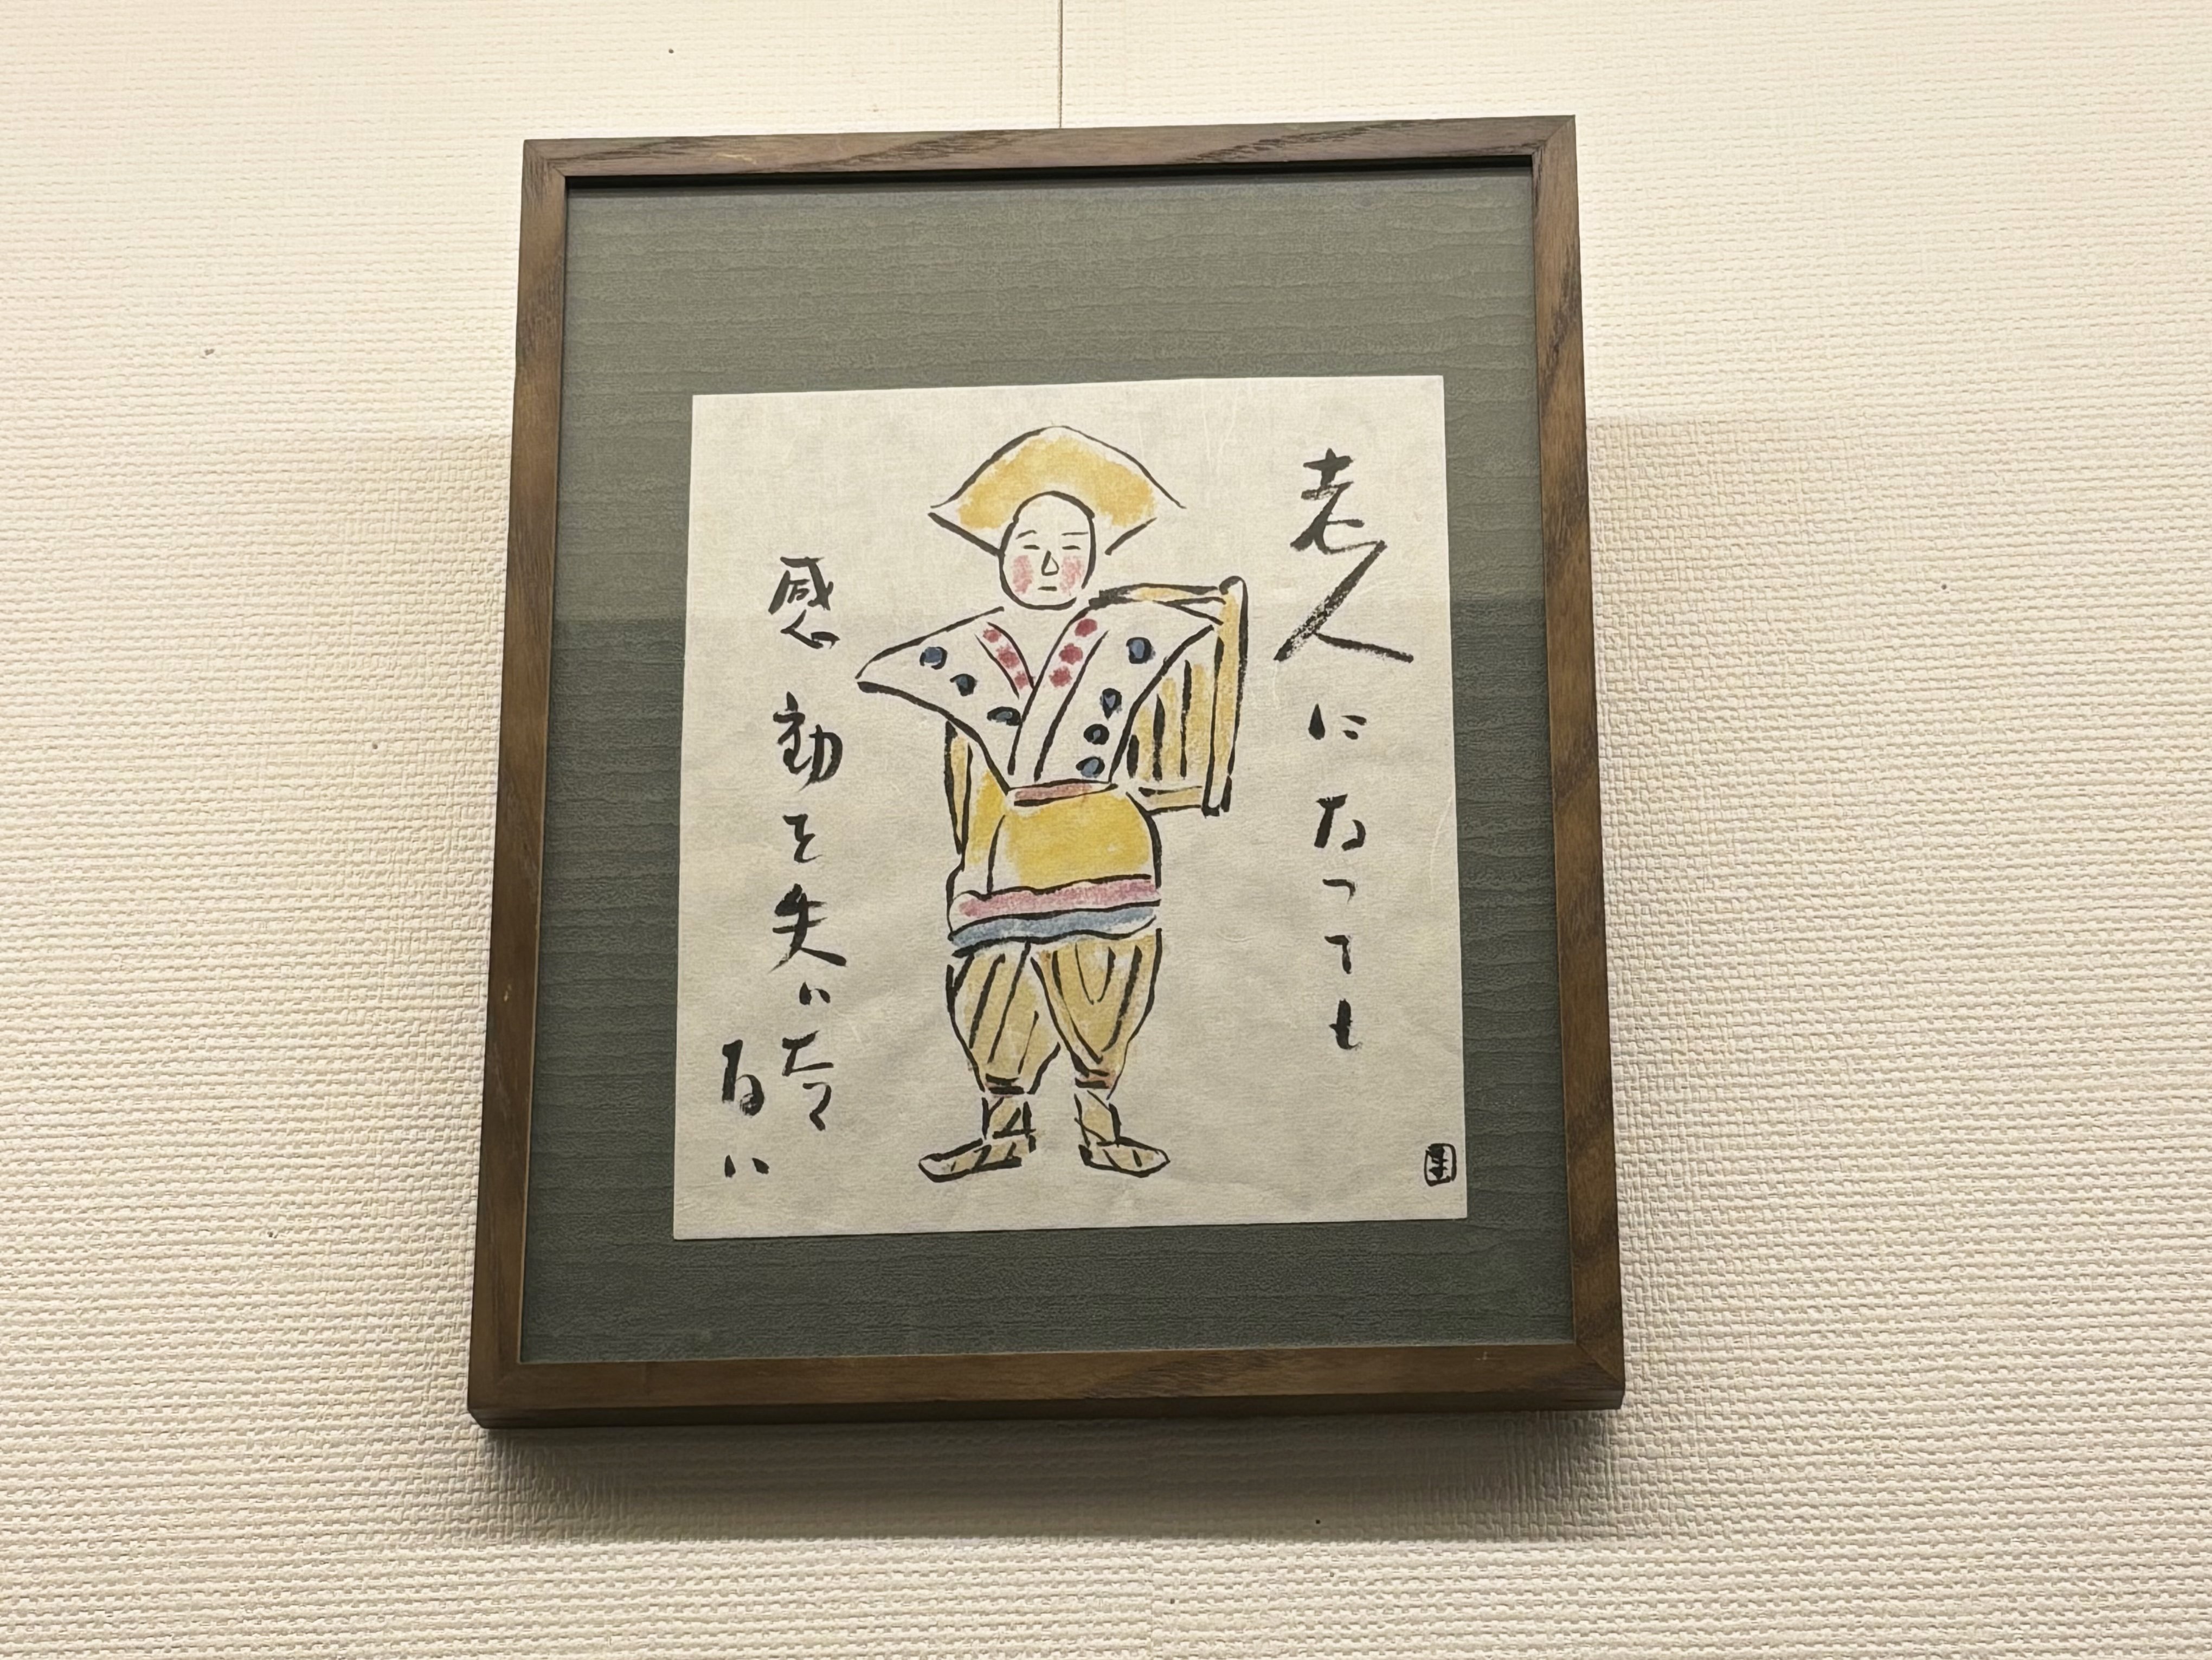 老人になっても
感動を失いたく
ない